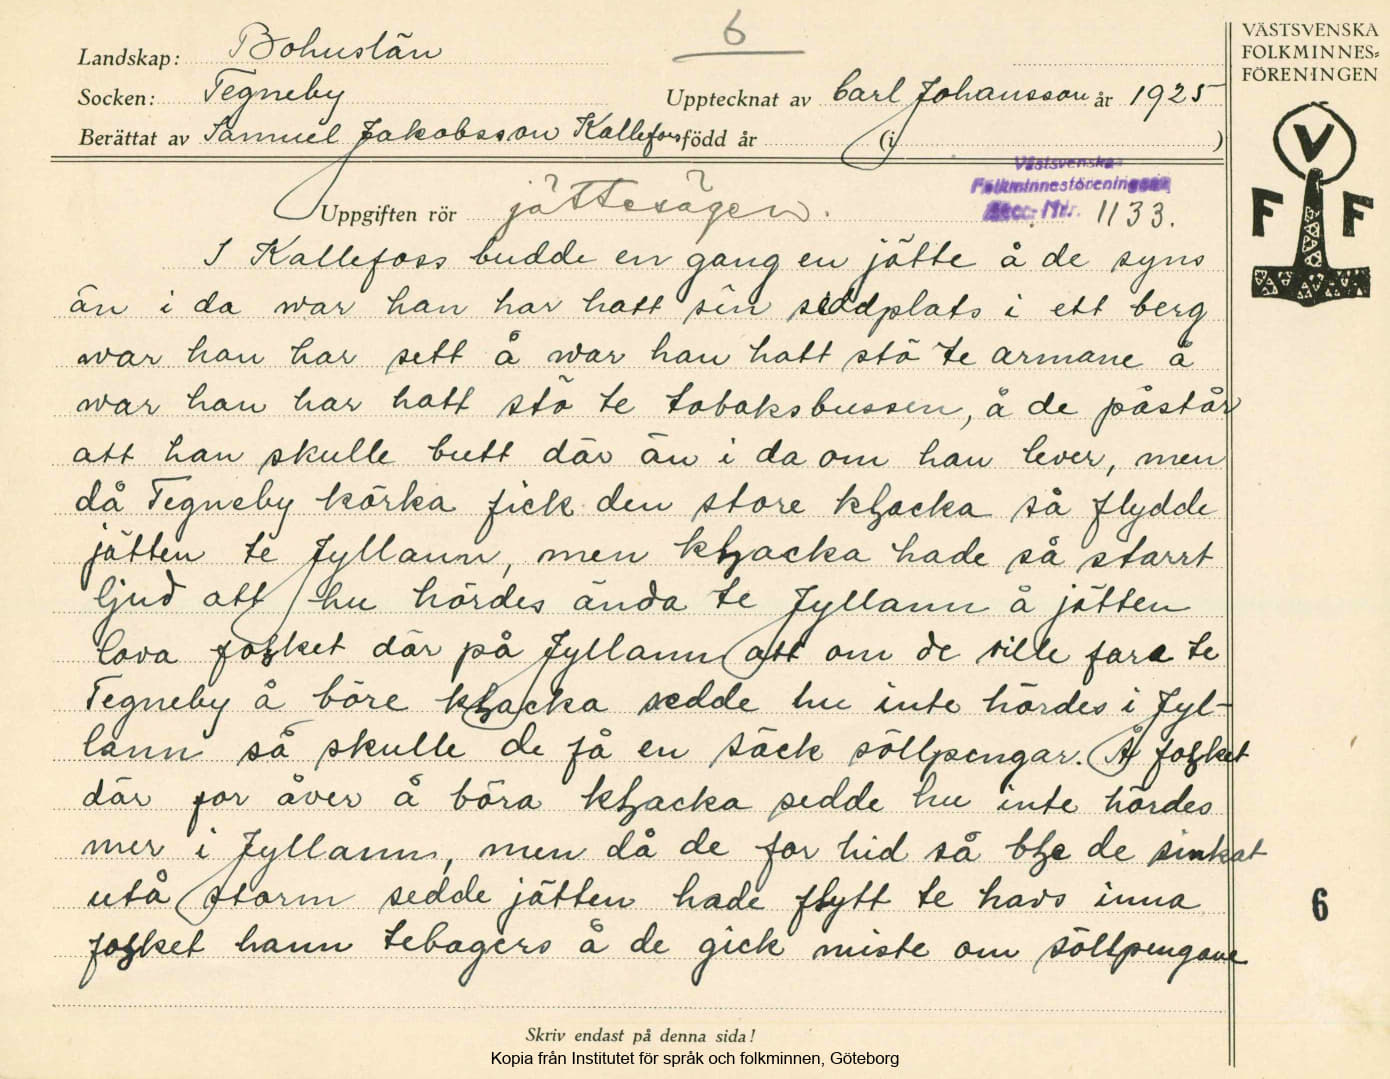 6
VÄSTSVENSKA
FOLKMINNES-
FÖRENINGEN
Landskap: Bohuslän
Socken: Tegneby Upptecknat av Carl Johansson år 1925
Berättat av Samuel Jakobsson Kallefoss född år (i )
Västsvenska
Folkminnesföreningen
Acc. Nr. 1133.
Uppgiften rör jättesägen.
V
F F
I Kallefoss budde en gang en jätte å de syns
än i da war han har hatt sin siddplats i ett berg
war han har sett å war han hatt stö te armane å
war han har hatt stö te tobaksbussen, å de påstår
att han skulle butt där än i da om han lever, men
då Tegneby körka fick den store kłacka så flydde
jätten te Jyllann, men kłacka hade så starrt
ljud att hu hördes ända te Jyllann å jätten
lova fołket där på Jyllann att om de ville fara te
Tegneby å böre kłacka sedde hu inte hördes i Jyl-
lann så skulle de få en säck söllpengar. Å fołket
där for åver å böra kłacka sedde hu inte hördes
mer i Jyllann, men då de for hid så błe de sinkat
utå storm sedde jätten hade flytt te havs inna
fołket hann tebagers å de gick miste om söllpengane
6
Skriv endast på denna sida!
Kopia från Institutet för språk och folkminnen, Göteborg